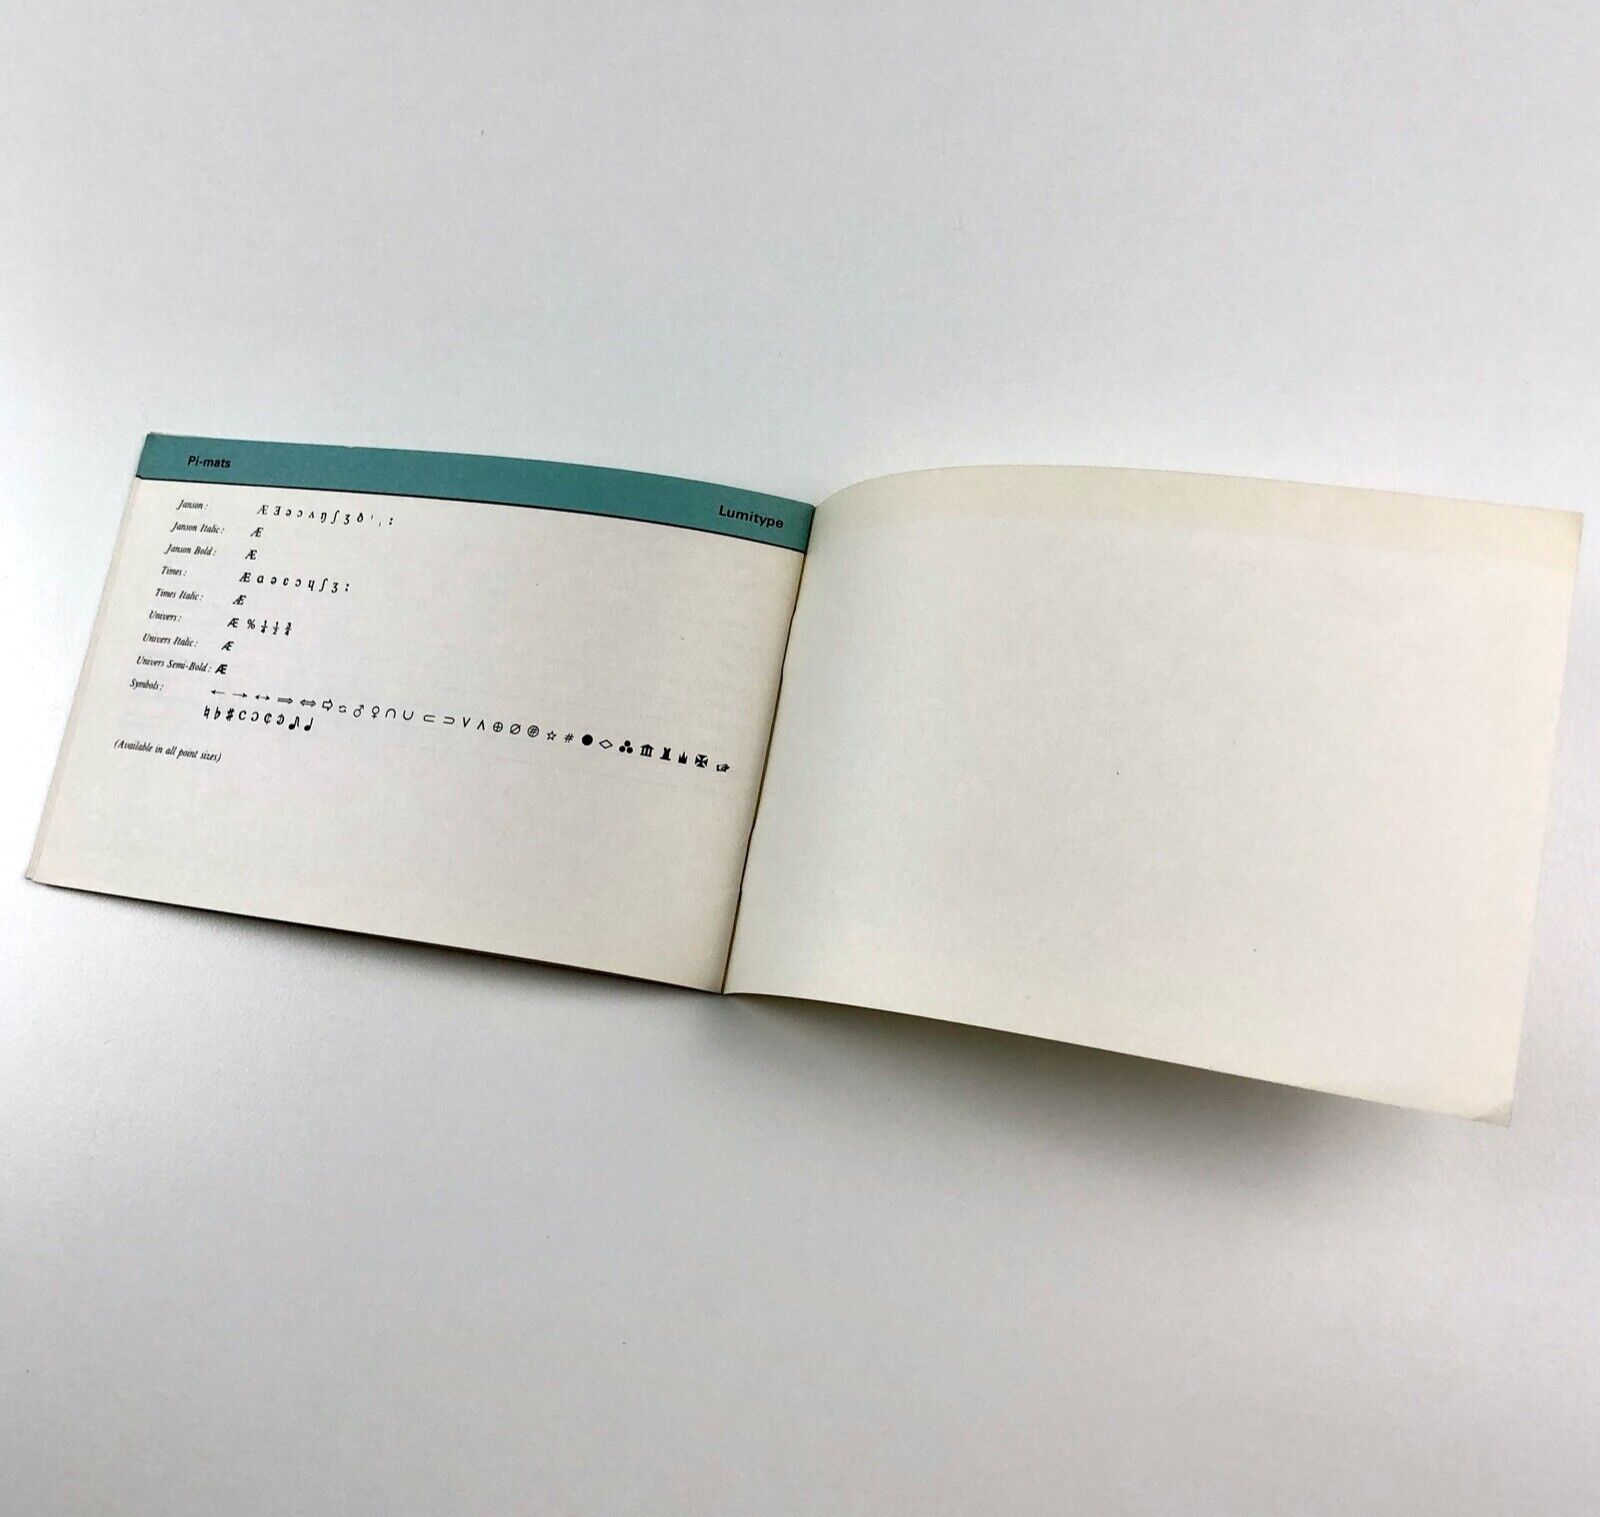 Pi-mats Lumitype
Janson: Æ Ǝ ə ɔ ʌ ŋ ʃ ʒ ð ˈ ˌ ː
Janson Italic: Æ
Janson Bold: Æ
Times: Æ ɑ ə ɛ ɔ ɥ ʃ ʒ ː
Times Italic: Æ
Univers: Æ % ¼ ½ ¾
Univers Italic: Æ
Univers Semi-Bold: Æ
Symbols: ← → ↔ ⇒ ⇔ ⇨ ♂ ♀ ∩ ∪ ⊂ ⊃ ∨ ∧ ⊕ ∅ # ☆ # ● ◇ ☞
♮ ♭ ♯ C Ɔ ¢ ♪ ♩
(Available in all point sizes)